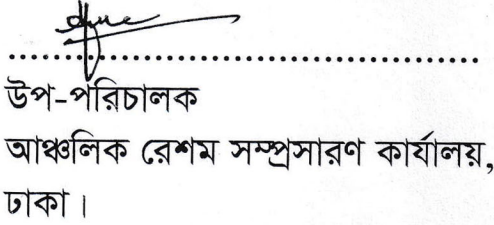 উপ-পরিচালক
আঞ্চলিক রেশম সম্প্রসারণ কার্যালয়,
ঢাকা।